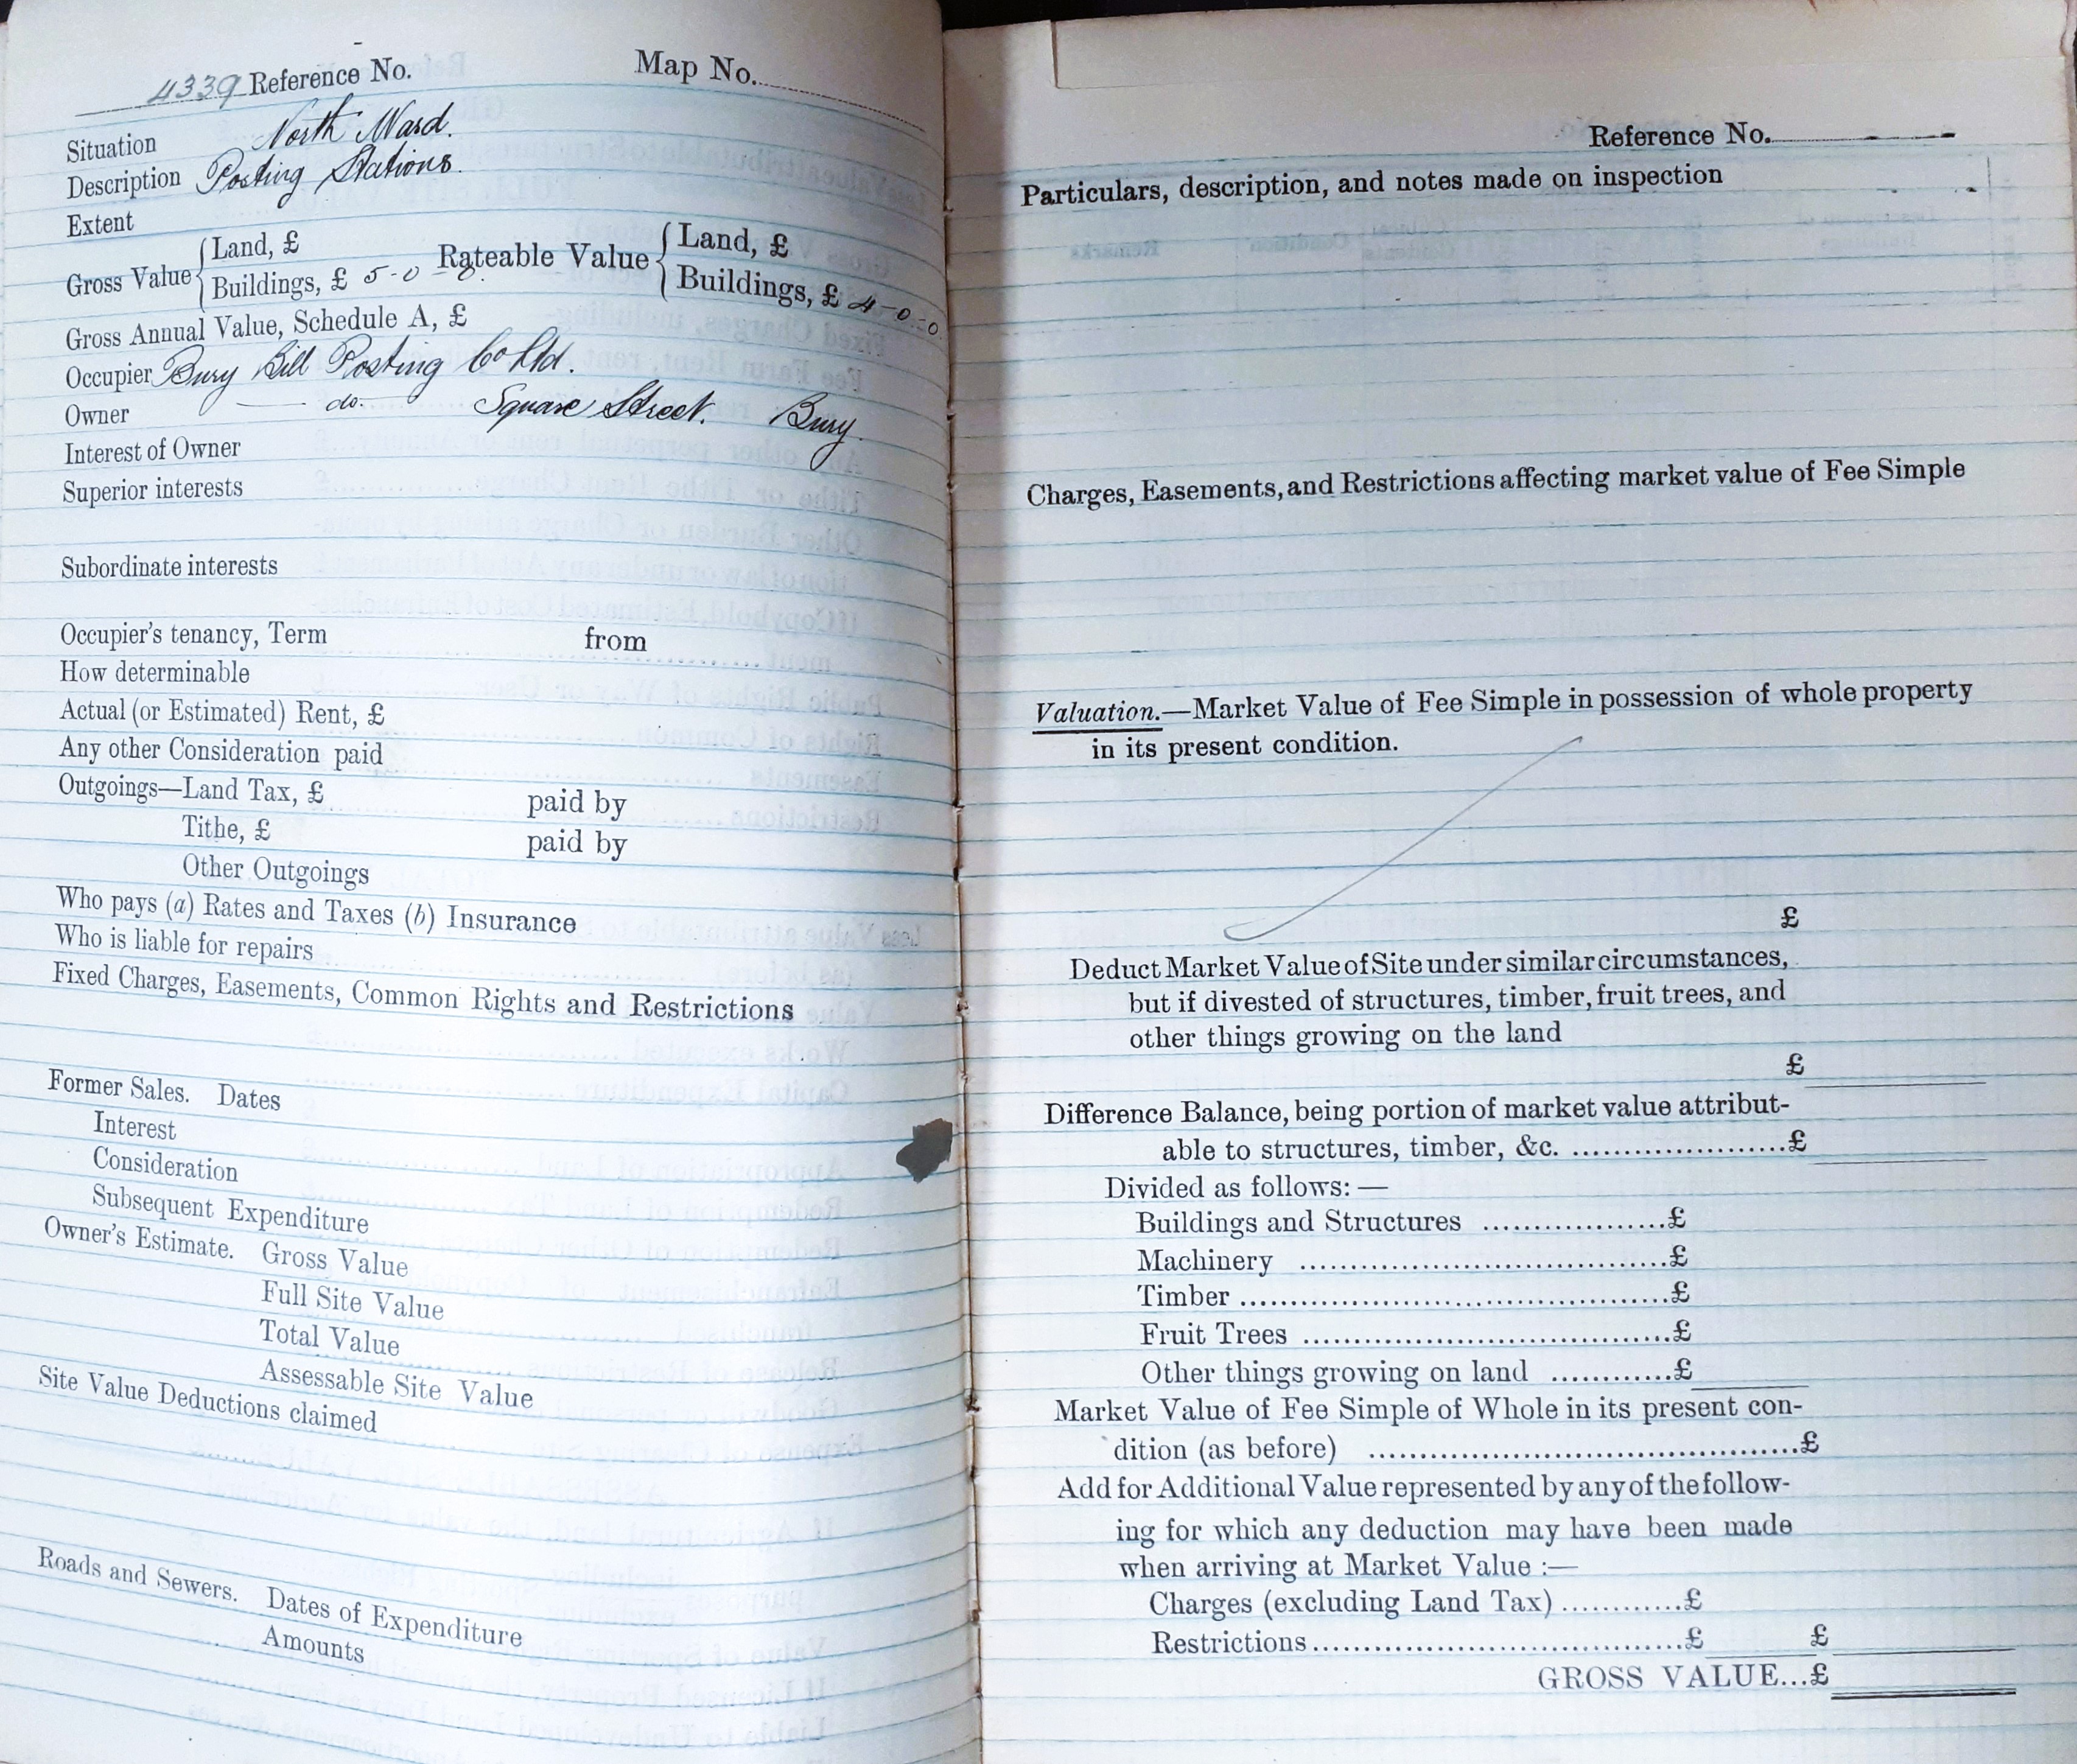 4339 Reference No. Map No.
Situation North Ward.
Description Posting Stations.
Extent
Gross Value { Land, £ Rateable Value { Land, £
Buildings, £ 5-0-0. Buildings, £ 4-0-0
Gross Annual Value, Schedule A, £
Occupier Bury Bill Posting Co Ltd.
Owner — do. — Square Street. Bury.
Interest of Owner
Superior interests
Subordinate interests
Occupier's tenancy, Term from
How determinable
Actual (or Estimated) Rent, £
Any other Consideration paid
Outgoings—Land Tax, £ paid by
Tithe, £ paid by
Other Outgoings
Who pays (a) Rates and Taxes (b) Insurance
Who is liable for repairs
Fixed Charges, Easements, Common Rights and Restrictions
Former Sales. Dates
Interest
Consideration
Subsequent Expenditure
Owner's Estimate. Gross Value
Full Site Value
Total Value
Assessable Site Value
Site Value Deductions claimed
Roads and Sewers. Dates of Expenditure
Amounts
Reference No.
Particulars, description, and notes made on inspection
Charges, Easements, and Restrictions affecting market value of Fee Simple
Valuation.—Market Value of Fee Simple in possession of whole property
in its present condition.
£
Deduct Market Value of Site under similar circumstances,
but if divested of structures, timber, fruit trees, and
other things growing on the land
£
Difference Balance, being portion of market value attribut-
able to structures, timber, &c. .....................£
Divided as follows:—
Buildings and Structures ..................£
Machinery .....................................£
Timber ..........................................£
Fruit Trees ....................................£
Other things growing on land ............£
Market Value of Fee Simple of Whole in its present con-
dition (as before) ..........................................£
Add for Additional Value represented by any of the follow-
ing for which any deduction may have been made
when arriving at Market Value :—
Charges (excluding Land Tax) ............£
Restrictions.....................................£ £
GROSS VALUE...£